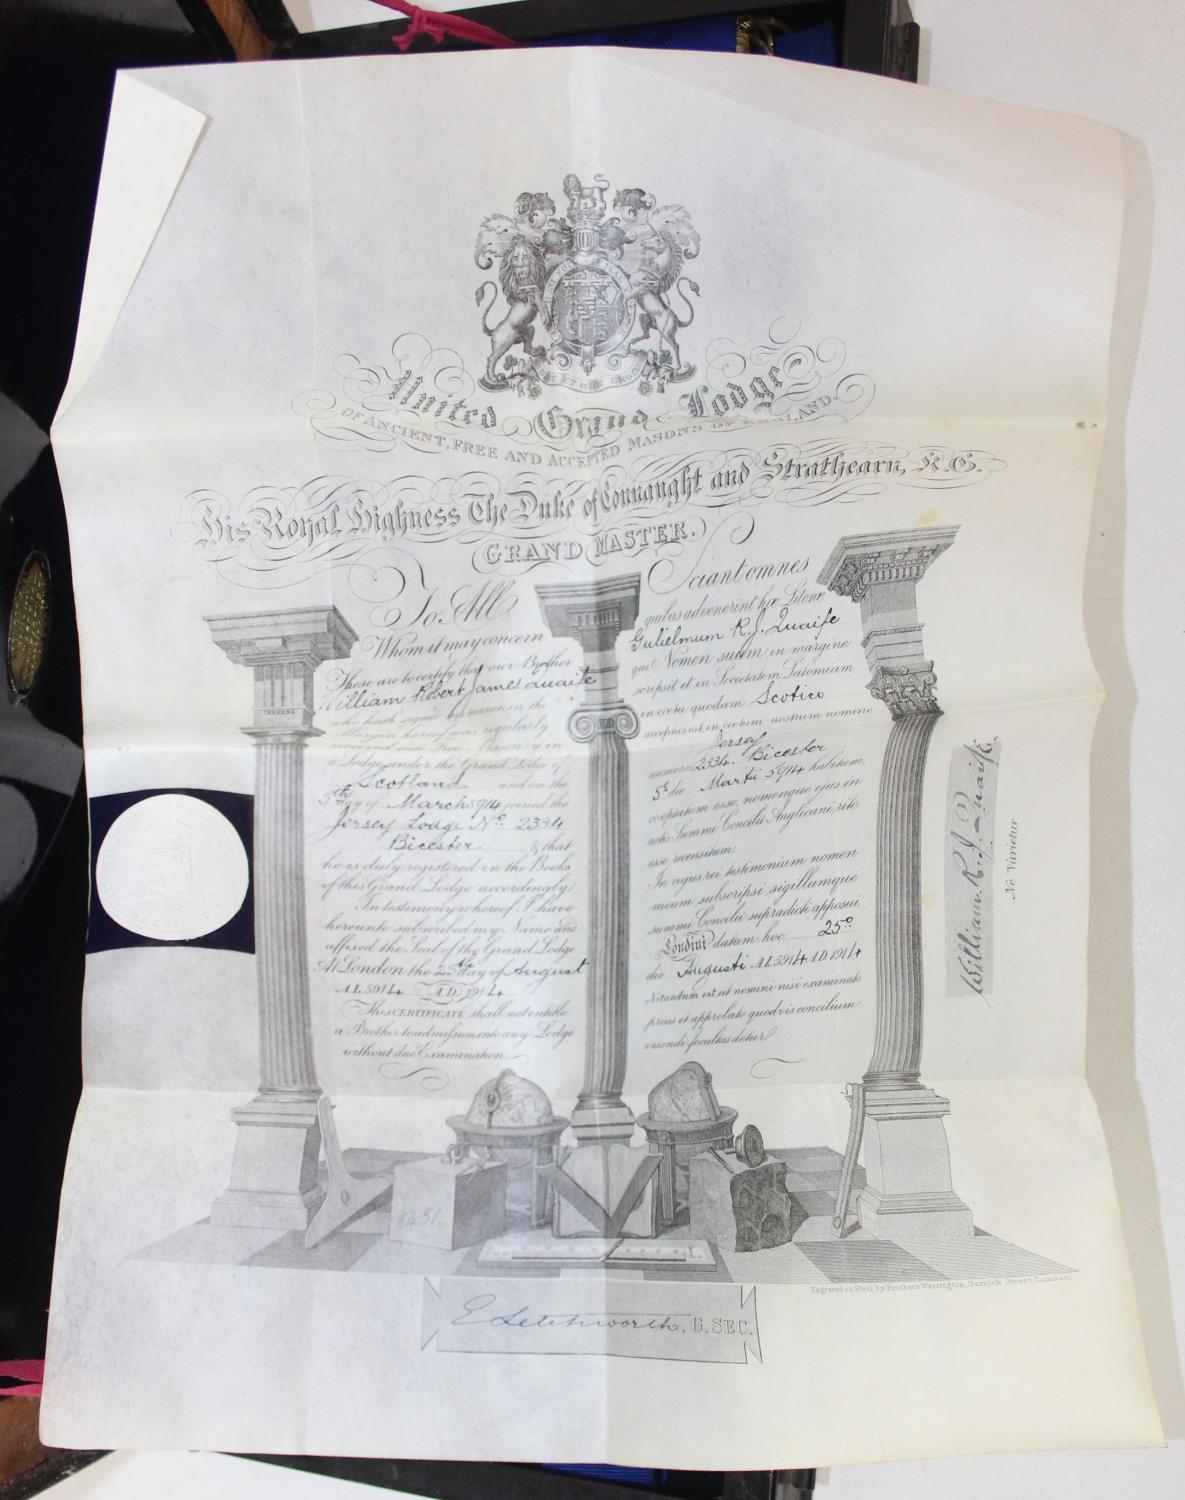 United Grand Lodge
OF ANCIENT, FREE AND ACCEPTED MASONS OF ENGLAND.
His Royal Highness The Duke of Connaught and Strathearn, K.G.
GRAND MASTER.
To All
Whom it may concern
These are to certify that our Brother
William Robert James Quaife
who hath signed his name in the
Margin hereof was regularly
received into Free Masonry in
a Lodge under the Grand Lodge of
Scotland and on the
5th day of March 5914 joined the
Jersey Lodge No. 2334
Bicester & that
he is duly registered in the Books
of this Grand Lodge accordingly
In testimony whereof I have
hereunto subscribed my Name and
affixed the Seal of the Grand Lodge
At London the day of August
A.L. 5914 A.D. 1914
This CERTIFICATE shall not entitle
a Brother to admission into any Lodge
without due Examination.
Sciant omnes
quibus advenerint hæ Literæ
Gulielmum R. J. Quaife
qui Nomen suum in margine
scripsit et in Societatem Latomiam
in cœtu quodam Scotico
acceptus est, in cœtum nostrum nomine
Jersey
numero 2334. Bicester
5º die Martii 5914 habitum,
cooptatum esse, nomenque ejus in
actis Summi Concilii Anglicani, rite
esse recensitum.
In cujus rei testimonium nomen
meum subscripsi sigillumque
summi Concilii supradicti apposui.
Londini datum hoc 25º
die Augusti A.L. 5914 A.D. 1914
Notandum est ut nemini nisi examinato
prius et approbato quodvis concilium
visendi facultas detur
William R. J. Quaife.
Ne Varietur
8431.
Engraved on Steel by Brothers Warrington Garrick Street London.
E Letchworth, G. SEC.